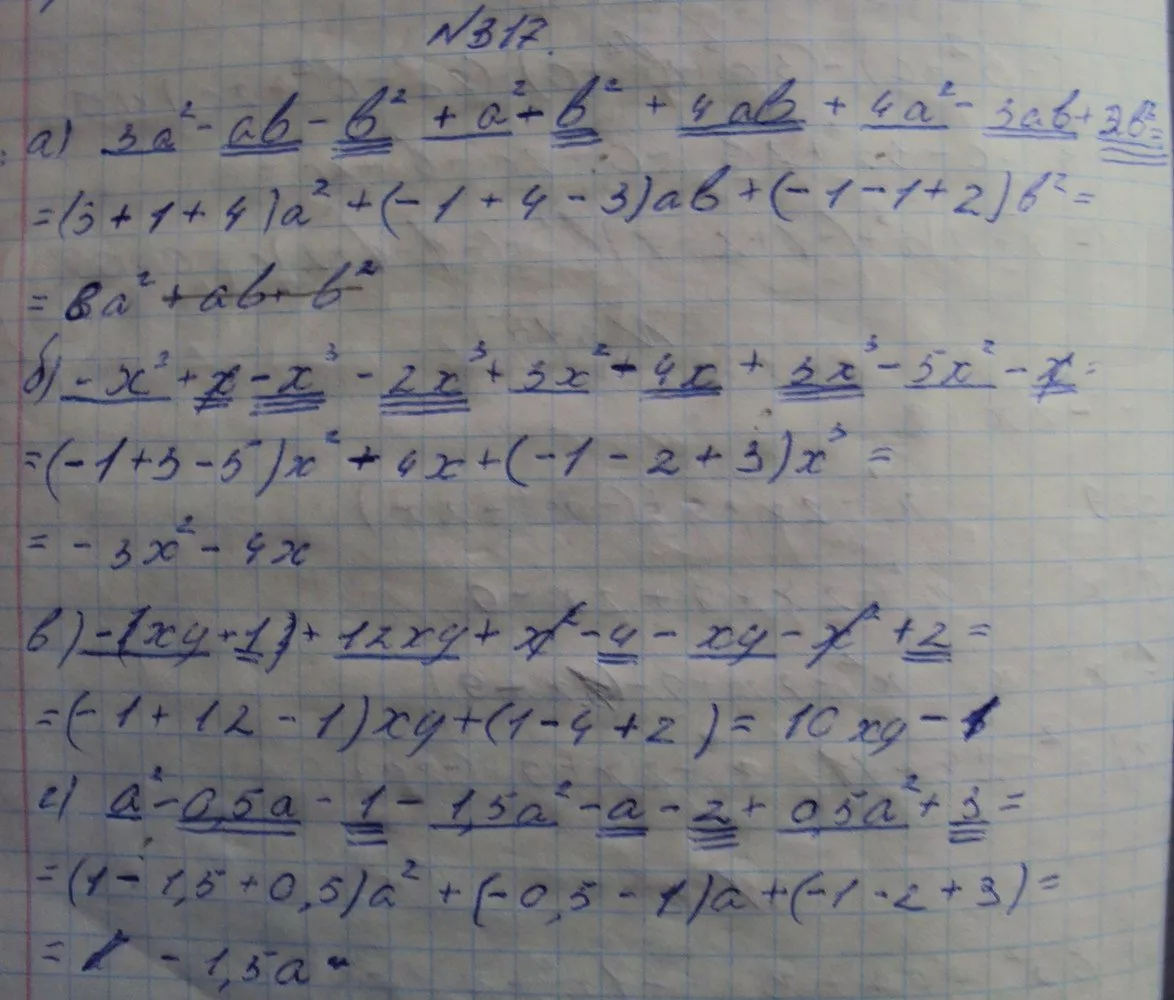 №317.
а) 3a² - ab - b² + a² - b² + 4ab + 4a² - 3ab + 2b² =
= (3 + 1 + 4)a² + (-1 + 4 - 3)ab + (-1 - 1 + 2)b² =
= 8a² + ab + b²
б) -x² + x - x³ - 2x³ + 3x² - 4x + 3x³ - 5x² - x =
= (-1 + 3 - 5)x² - 4x + (-1 - 2 + 3)x³ =
= -3x² - 4x
в) -(xy + 1) + 12xy + x² - 4 - xy - x² + 2 =
= (-1 + 12 - 1)xy + (1 - 4 + 2) = 10xy - 1
г) a² - 0,5a - 1 - 1,5a² - a - 2 + 0,5a² + 3 =
= (1 - 1,5 + 0,5)a² + (-0,5 - 1)a + (-1 - 2 + 3) =
= - 1,5a